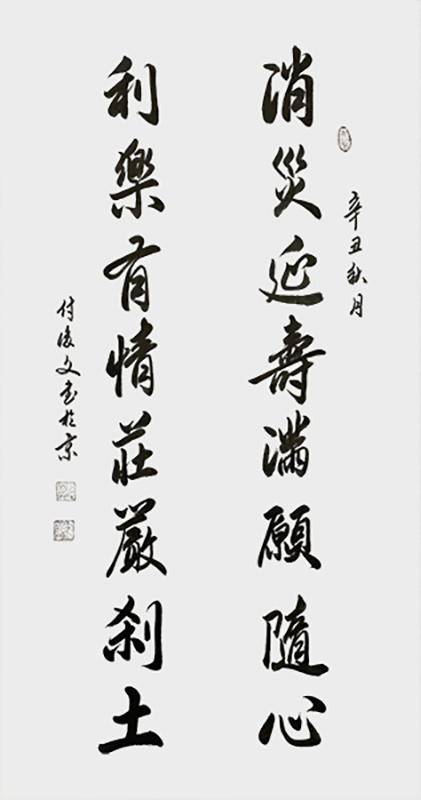 辛丑秋月
消災延壽滿願隨心
利樂有情莊嚴刹土
付俊文書於京